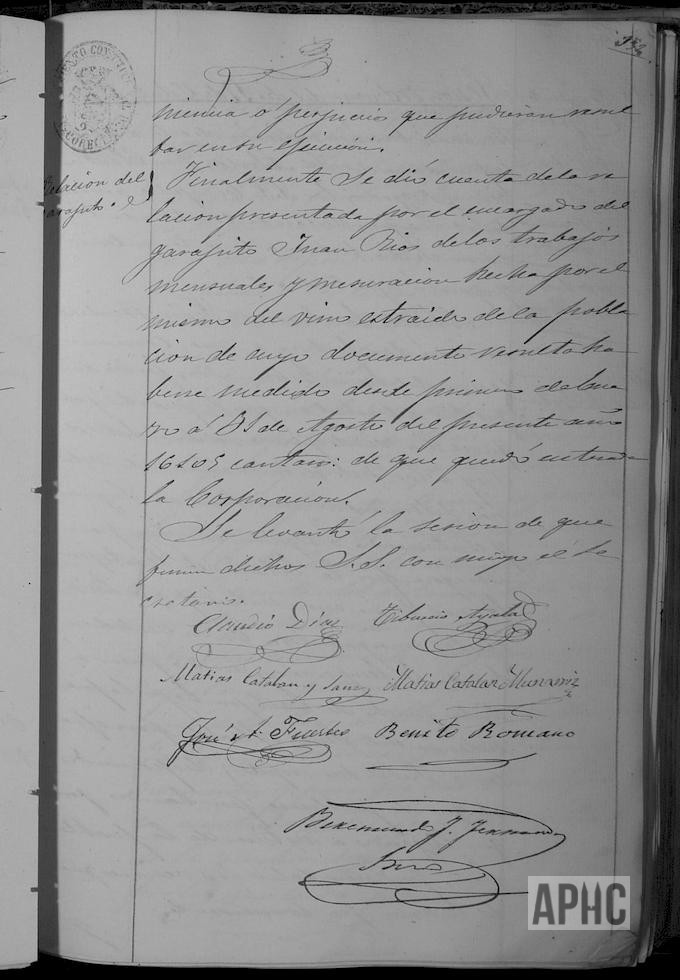 niencia ó perjuicios que pudieran resul
tar en su ejecucion.
Relacion del
garapito.
Finalmente se dió cuenta de la re
lacion presentada por el encargado del
garapito Juan Rios de los trabajos
mensuales y mesuracion hecha por el
mismo del vino estraido de la pobla
cion de cuyo documento resulta ha
berse medido desde primero de Ene
ro á 31 de Agosto del presente año
16105 cantaros: de que quedó enterada
la Corporacion.
Se levantó la sesion de que
firman dichos S.S. con migo el Se
cretario.
Claudio Diaz
Tiburcio Ayala
Matias Catalan y Sanz
Matias Catalan Munarriz
José A. Fuertes
Benito Romano
Beremundo J.
Srio
APHC